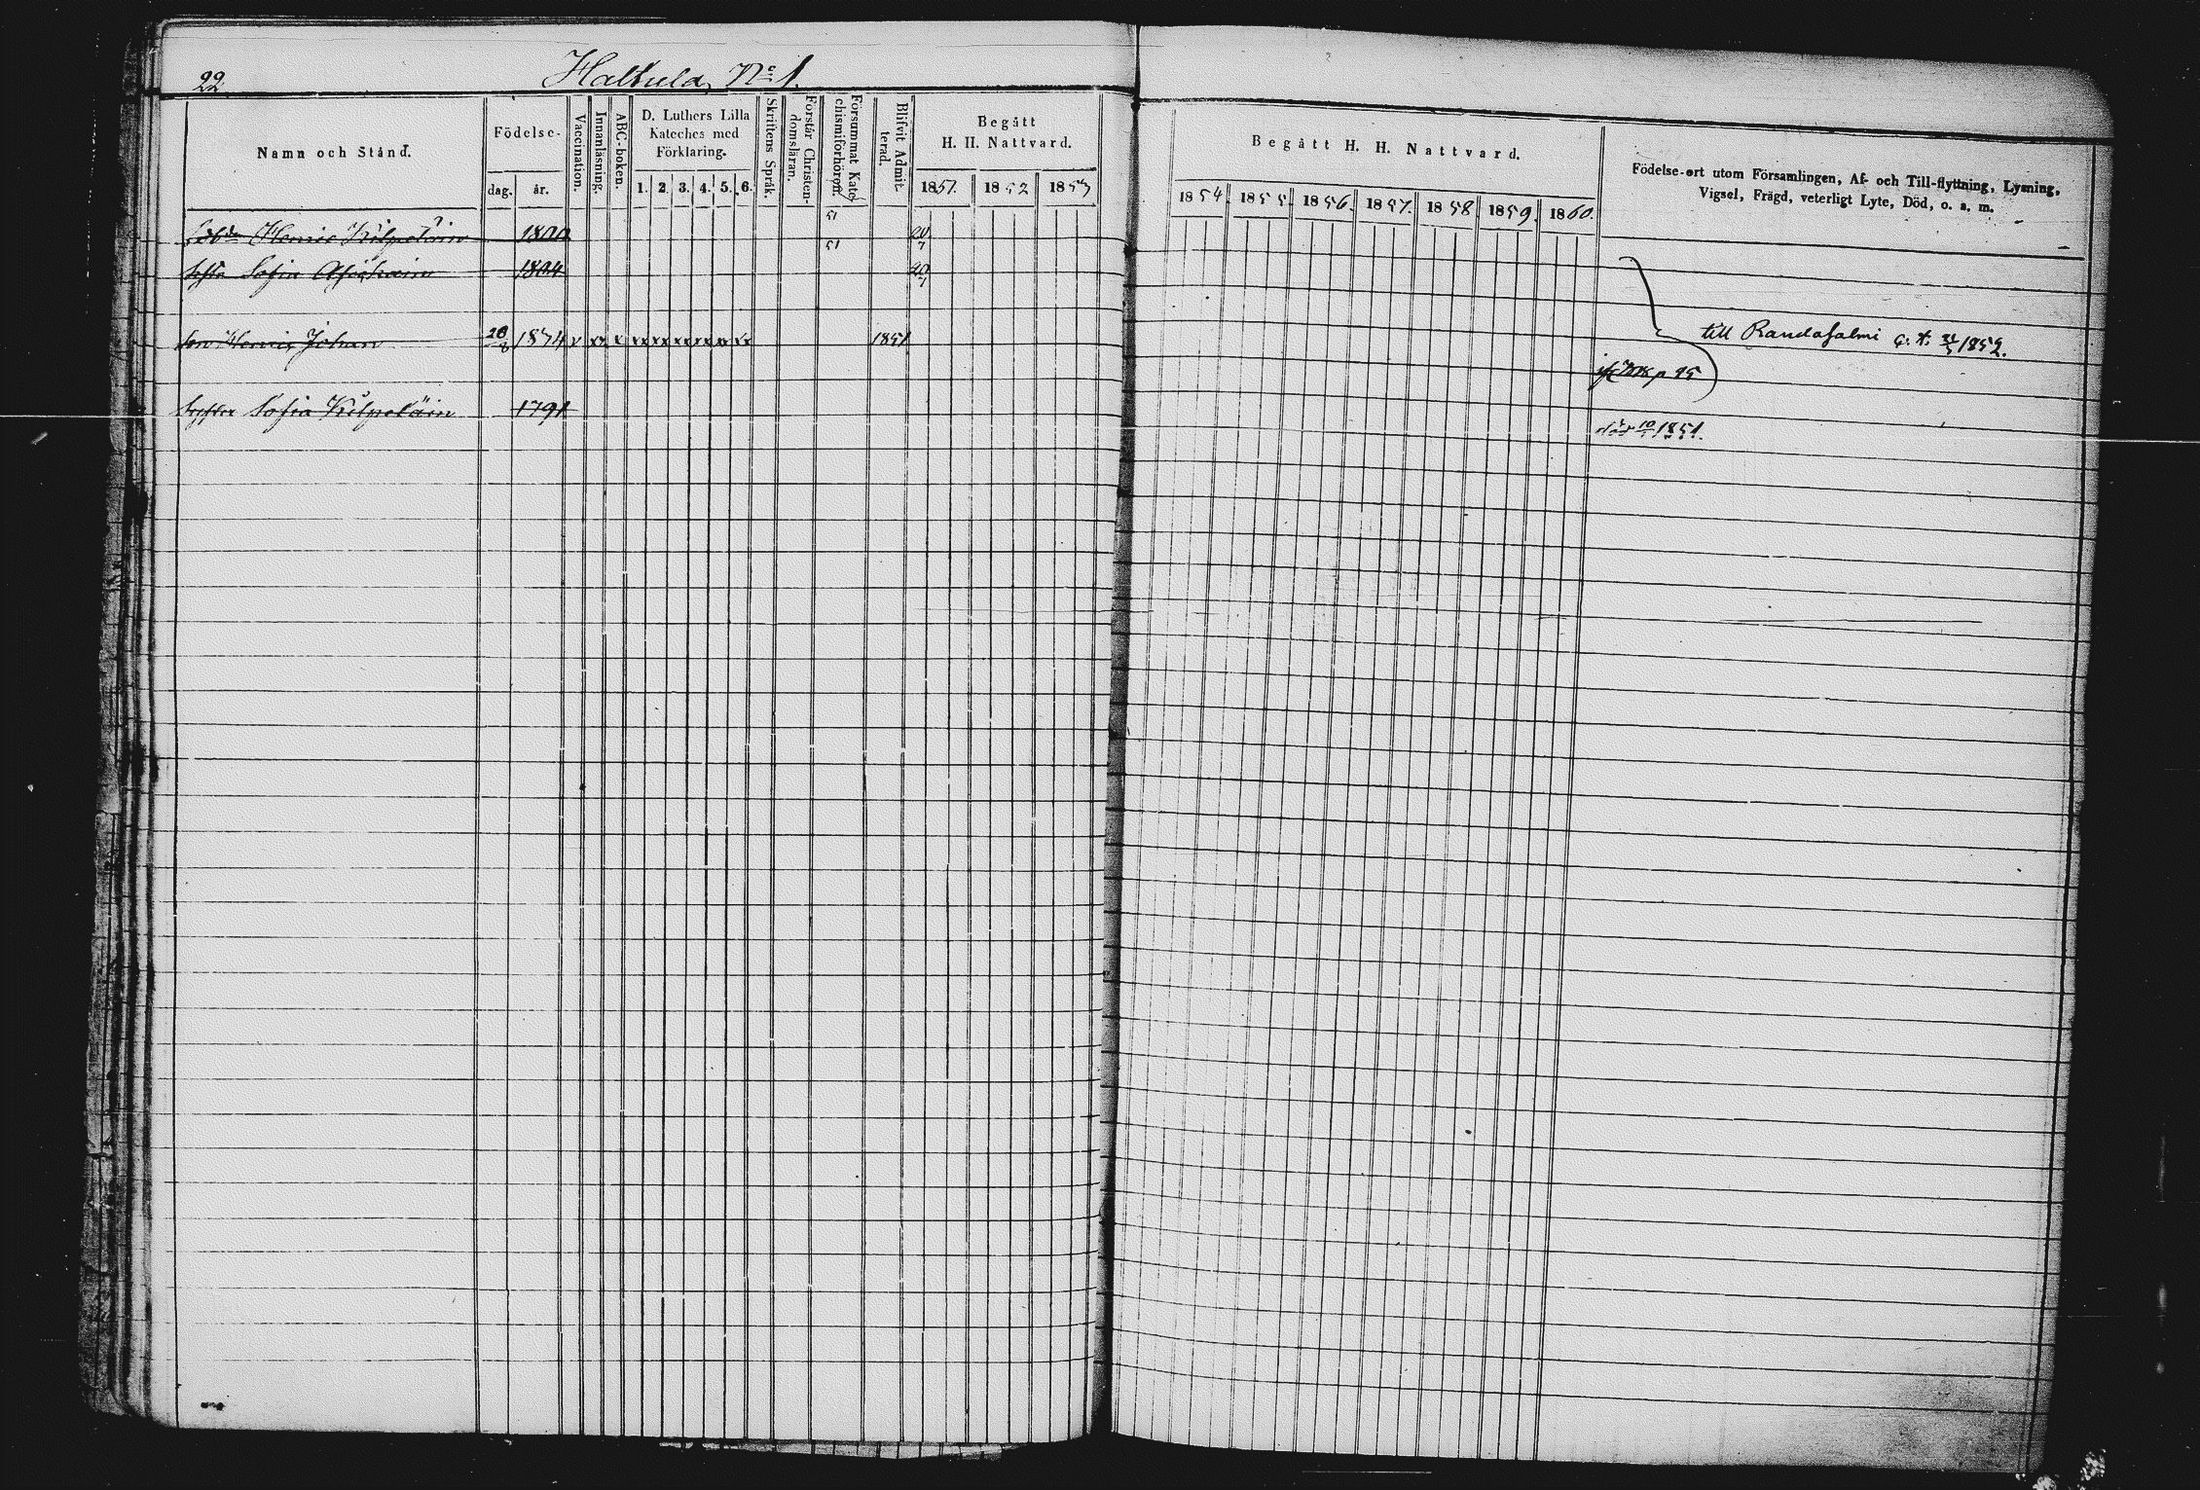 22.
Halkula N:o 1.
Namn och Stånd.
Födelse-
dag. år.
Vaccination.
Innanläsning.
ABC-boken.
D. Luthers Lilla
Kateches med
Förklaring.
1. 2. 3. 4. 5. 6.
Skriftens Språk.
Förstår Christen-
domsläran.
Försummat Kate-
chismiförhören.
Blifvit Admit-
terad.
Begått
H. H. Nattvard.
1851. 1852 1853
Begått H. H. Nattvard.
1854. 1855. 1856. 1857. 1858 1859. 1860.
Födelse-ort utom Församlingen, Af- och Till-flyttning, Lysning,
Vigsel, Frägd, veterligt Lyte, Död, o. s. m.
Henric Kilpeläin 1800 51 51 20/7
Sofia 1804 20/7
Son Henric Johan 1834 x xx x xx xx xx xx xx xx 1851
till Randasalmi 1852.
p 95
Sofia Kilpeläin 1791
död 1851.